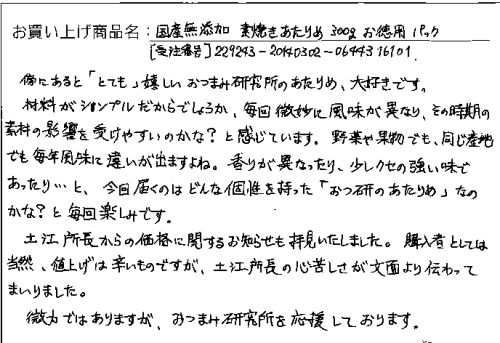 お買い上げ商品名：国産無添加 素焼きあたりめ 300g お徳用 1パック
[受注番号] 229243-20140302-0644316101
傍にあると「とても」嬉しいおつまみ研究所のあたりめ、大好きです。
材料がシンプルだからでしょうか、毎回微妙に風味が異なり、その時期の
素材の影響を受けやすいのかな？と感じています。野菜や果物でも、同じ産地
でも毎年風味に違いが出ますよね。香りが異なったり、少しクセの強い味で
あったり…と、今回届くのはどんな個性を持った「おつ研のあたりめ」なの
かな？と毎回楽しみです。
土江所長からの価格に関するお知らせも拝見いたしました。購入者としては
当然、値上げは辛いものですが、土江所長の心苦しさが文面より伝わって
まいりました。
微力ではありますが、おつまみ研究所を応援しております。